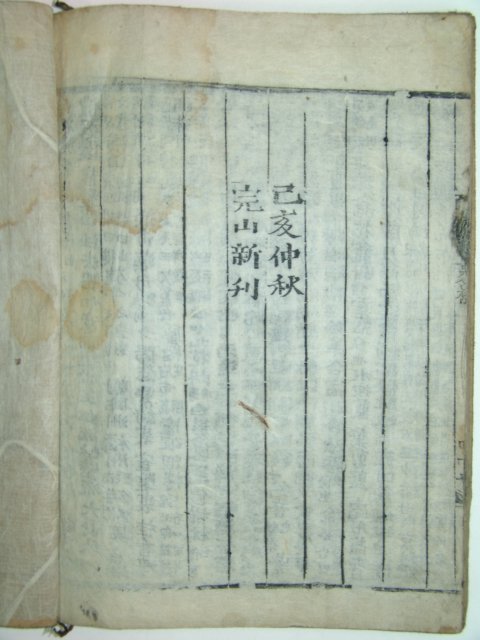 己亥仲秋
完山新刊